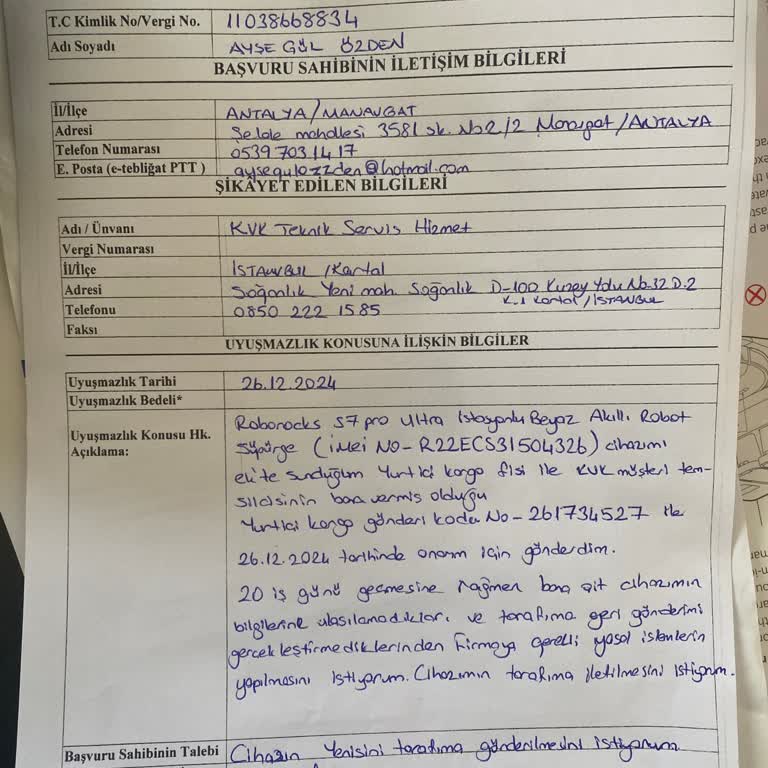 T.C Kimlik No/Vergi No. 11038668834
Adı Soyadı AYŞE GÜL ÖZDEN
BAŞVURU SAHİBİNİN İLETİŞİM BİLGİLERİ
İl/İlçe ANTALYA/MANAVGAT
Adresi Şelale mahallesi 3581 sk. No2/2 Manavgat/ANTALYA
Telefon Numarası 0539 703 14 17
E. Posta (e-tebliğat PTT ) aysegulozzden@hotmail.com
ŞİKAYET EDİLEN BİLGİLERİ
Adı / Ünvanı KVK Teknik Servis Hizmet
Vergi Numarası
İl/İlçe İSTANBUL /Kartal
Adresi Soğanlık Yeni mah. Soğanlık D-100 Kuzey Yolu No.32 D.2
K.1 Kartal / İSTANBUL
Telefonu 0850 222 1585
Faksı
UYUŞMAZLIK KONUSUNA İLİŞKİN BİLGİLER
Uyuşmazlık Tarihi 26.12.2024
Uyuşmazlık Bedeli*
Uyuşmazlık Konusu Hk.
Açıklama:
Roborocks S7 pro Ultra İstasyonlu Beyaz Akıllı Robot
Süpürge (iMei NO - R22ECS31504326) cihazımı
ekite sunduğum Yurtiçi kargo fişi ile KVK müşteri tem-
silcisinin bana vermiş olduğu
Yurtiçi kargo gönderi kodu No - 261734527 ile
26.12.2024 tarihinde onarım için gönderdim.
20 iş günü geçmesine rağmen bana ait cihazımın
bilgilerine ulaşılamadıkları ve tarafıma geri gönderimi
gerçekleştirmediklerinden firmaya gerekli yasal işlemlerin
yapılmasını istiyorum. Cihazımın tarafıma iletilmesini istiyorum.
Başvuru Sahibinin Talebi Cihazın Yenisini tarafıma gönderilmesini istiyorum